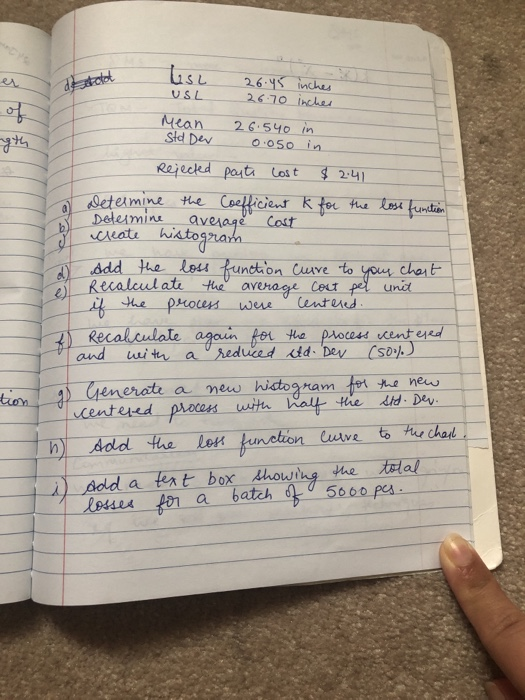 er
of
ngth
tion
LSL 26.45 inches
USL 26.70 inches
Mean 26.540 in
Std Dev 0.050 in
Rejected parts cost $ 2.41
a) Determine the Coefficient K for the loss function
b) Determine average cost
c) create histogram
d) Add the loss function curve to your chart
e) Recalculate the average cost per unit
if the process were centered.
f) Recalculate again for the process centered
and with a reduced std. Dev (50%)
g) Generate a new histogram for the new
centered process with half the std. Dev.
h) Add the loss function curve to the chart.
i) Add a text box showing the total
losses for a batch of 5000 pcs.